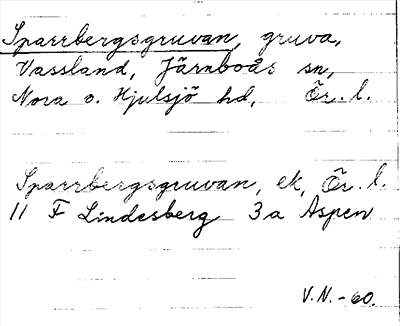 Sparrbergsgruvan, gruva,
Vassland, Järnboås sn,
Nora o. Hjulsjö hd, Ör. l.
Sparrbergsgruvan, ek, Ör. l.
11 F Lindesberg 3a Aspen
V.N.-60.